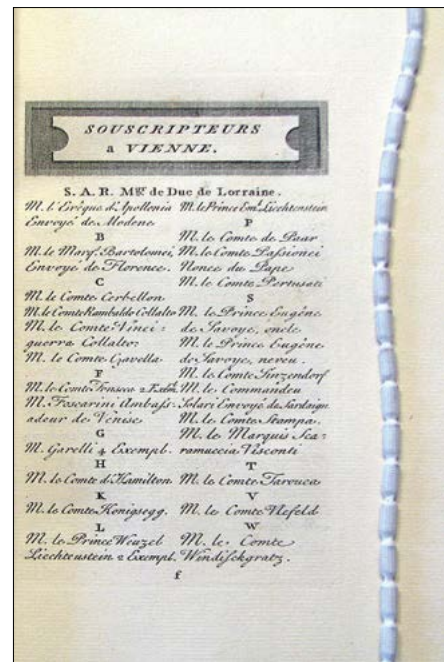 SOUSCRIPTEURS
a VIENNE.
S. A. R. Mgr. de Duc de Lorraine.
M. l'Evêque d'Apollonia
Envoyé de Modene
B
M. le Marqs. Bartolomei,
Envoyé de Florence.
C
M. le Comte Cerbellon
M. le Comte Rambaldo Collalto
M. le Comte Vinci-
guerra Collalto
M. le Comte Czavella
F
M. le Comte Fonseca 2 Exem.
M. Foscarini Ambass-
adeur de Venise
G
M. Garelli 4 Exempl.
H
M. le Comte d'Hamilton
K
M. le Comte Konigsegg.
L
M. le Prince Wenzel
Liechtenstein 2 Exempl.
M. le Prince Eml. Liechtenstein
P
M. le Comte de Paar
M. le Comte Passionei
Nonce du Pape
M. le Comte Pertusati
S
M. le Prince Eugêne
de Savoye, oncle
M. le Prince Eugêne
de Savoye, neveu.
M. le Comte Sinzendorf
M. le Commandeu
Solari Envoyé de Sardaign
M. le Comte Stampa.
M. le Marquis Sca-
ramuccia Visconti
T
M. le Comte Tarouca
V
M. le Comte Vlefeld
W
M. le Comte
Windischgratz.
f